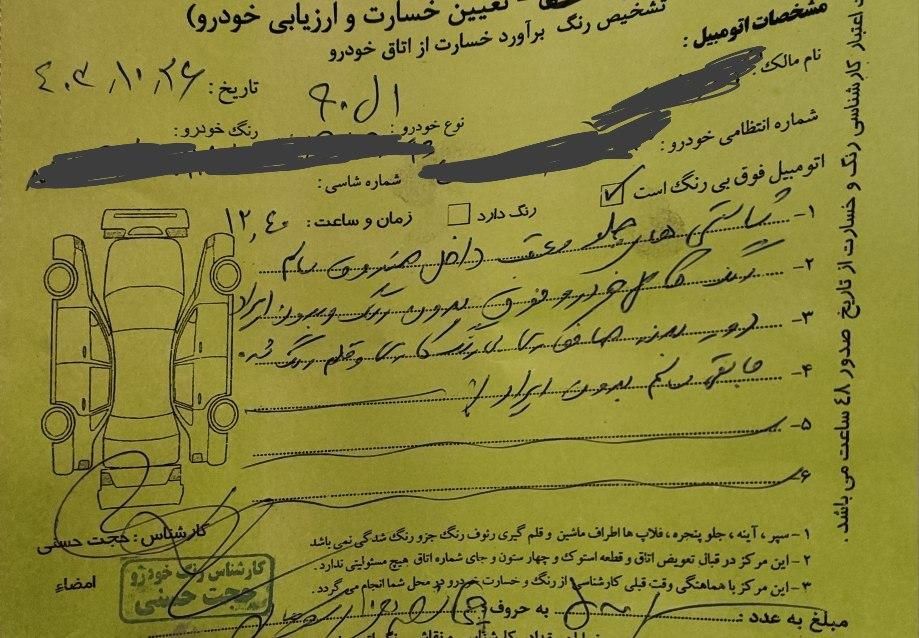 تعیین خسارت و ارزیابی خودرو)
تشخیص رنگ برآورد خسارت از اتاق خودرو
مشخصات اتومبیل :
نام مالک :
تاریخ : ۴۰۳/۱۰/۲۶
نوع خودرو : ال ۹۰
رنگ خودرو :
شماره انتظامی خودرو :
شماره شاسی :
اتومبیل فوق بی رنگ است ✓
رنگ دارد
زمان و ساعت : ۱۲,۴۰
۱- شاستی های جلو عقب داخل صندوق سالم
۲- رنگ کامل خودرو فوق بدون رنگ و بدون ایراد
۳- دور بدنه صافکاری بی رنگ کاری و قلم رنگ شده
۴- مابقی سالم بدون ایراد
۵-
۶-
اعتبار کارشناسی رنگ و خسارت از تاریخ صدور ۴۸ ساعت می باشد .
کارشناس : حجت حسنی
امضاء
کارشناس رنگ خودرو
حجت حسنی
۱- سپر ، آینه ، جلو پنجره ، فلاپ ها اطراف ماشین و قلم گیری رئوف رنگ جزو رنگ شدگی نمی باشد
۲- این مرکز در قبال تعویض اتاق و قطعه استوک و چهار ستون و جای شماره اتاق هیچ مسئولیتی ندارد .
۳- این مرکز با هماهنگی وقت قبلی کارشناسی از رنگ و خسارت خودرو در محل شما انجام می گردد .
مبلغ به عدد :
به حروف :